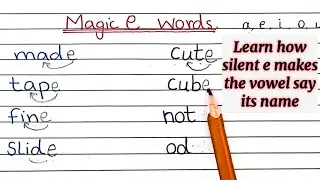 Magic e Words. a, e, i, o, u
made cute
tape cube
fine not
slide od
Learn how
silent e makes
the vowel say
its name